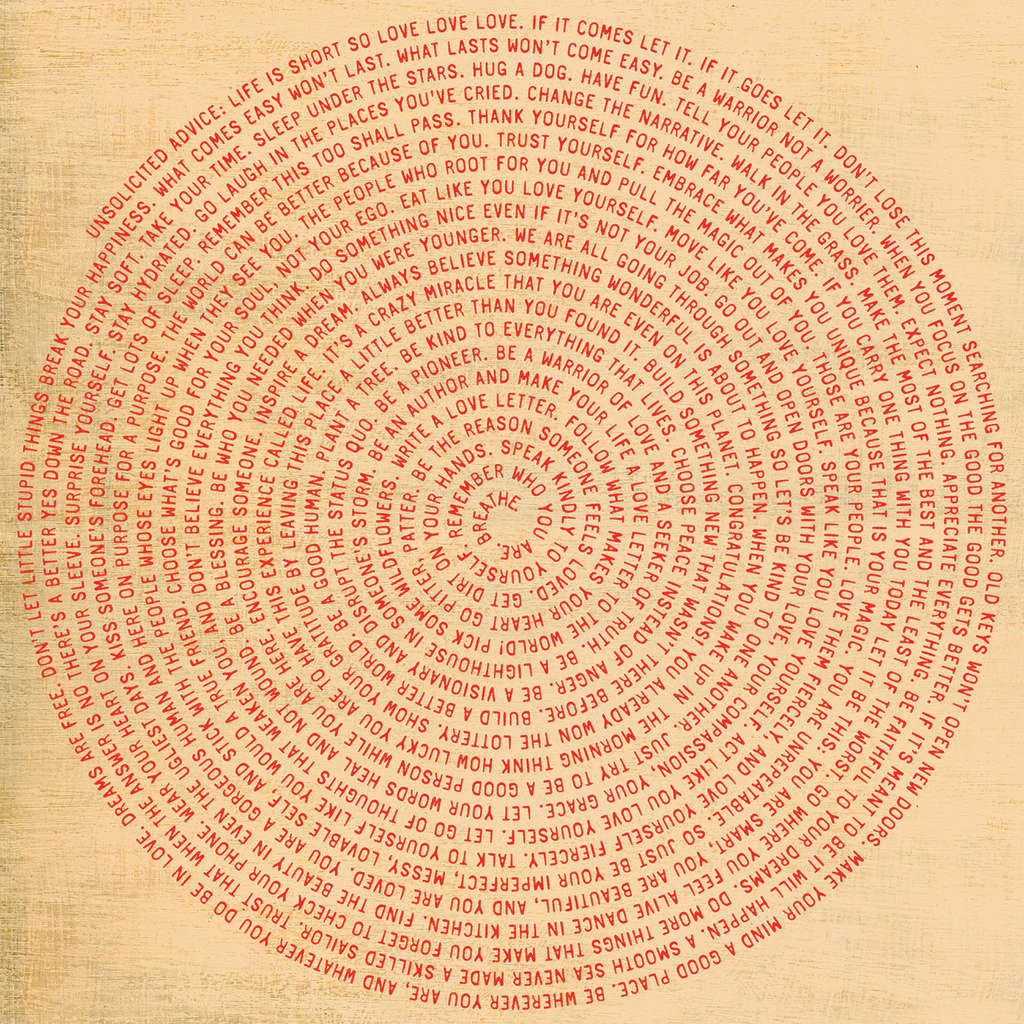 UNSOLICITED ADVICE: LIFE IS SHORT SO LOVE LOVE LOVE. IF IT COMES LET IT. IF IT GOES LET IT. DON'T LOSE THIS MOMENT SEARCHING FOR ANOTHER. OLD KEYS WON'T OPEN NEW DOORS. MAKE YOUR MIND A GOOD PLACE. BE WHEREVER YOU ARE, AND, WHATEVER YOU DO BE IN LOVE. DREAMS ARE FREE. DON'T LET LITTLE STUPID THINGS BREAK YOUR HAPPINESS. WHAT COMES EASY WON'T LAST. WHAT LASTS WON'T COME EASY. BE A WARRIOR NOT A WORRIER. WHEN YOU FOCUS ON THE GOOD THE GOOD GETS BETTER. IF IT'S MEANT TO BE IT WILL HAPPEN. A SMOOTH SEA NEVER MADE A SKILLED SAILOR. TRUST THAT WHEN THE ANSWER IS NO THERE'S A BETTER YES DOWN THE ROAD. STAY SOFT. TAKE YOUR TIME. SLEEP UNDER THE STARS. HUG A DOG. HAVE FUN. TELL YOUR PEOPLE YOU LOVE THEM. EXPECT NOTHING. APPRECIATE EVERYTHING. BE FAITHFUL TO YOUR DREAMS. DO MORE THINGS THAT MAKE YOU FORGET TO CHECK YOUR PHONE. WEAR YOUR HEART ON YOUR SLEEVE. SURPRISE YOURSELF. STAY HYDRATED. GO LAUGH IN THE PLACES YOU'VE CRIED. CHANGE THE NARRATIVE. WALK IN THE GRASS. MAKE THE MOST OF THE BEST AND THE LEAST OF THE WORST. GO WHERE YOU FEEL ALIVE. DANCE IN THE KITCHEN. FIND THE BEAUTY IN EVEN THE UGLIEST DAYS. KISS SOMEONE'S FOREHEAD. GET LOTS OF SLEEP. REMEMBER THIS TOO SHALL PASS. THANK YOURSELF FOR HOW FAR YOU'VE COME. IF YOU CARRY ONE THING WITH YOU TODAY LET IT BE THIS: YOU ARE SMART, YOU ARE BEAUTIFUL, AND YOU ARE LOVED. YOU ARE A GORGEOUS HUMAN AND HERE ON PURPOSE FOR A PURPOSE. THE WORLD CAN BE BETTER BECAUSE OF YOU. TRUST YOURSELF. EMBRACE WHAT MAKES YOU UNIQUE BECAUSE THAT IS YOUR MAGIC. YOU ARE UNREPEATABLE. SO JUST BE YOUR IMPERFECT, MESSY, LOVABLE SELF AND STICK WITH THE PEOPLE WHOSE EYES LIGHT UP WHEN THEY SEE YOU. THE PEOPLE WHO ROOT FOR YOU AND PULL THE MAGIC OUT OF YOU. THOSE ARE YOUR PEOPLE. LOVE THEM FIERCELY AND LOVE YOURSELF FIERCELY. TALK TO YOURSELF LIKE YOU WOULD A TRUE FRIEND. CHOOSE WHAT'S GOOD FOR YOUR SOUL, NOT YOUR EGO. EAT LIKE YOU LOVE YOURSELF. MOVE LIKE YOU LOVE YOURSELF. SPEAK LIKE YOU LOVE YOURSELF. ACT LIKE YOU LOVE YOURSELF. LET GO OF THOUGHTS THAT WEAKEN YOU, AND DON'T BELIEVE EVERYTHING YOU THINK. DO SOMETHING NICE EVEN IF IT'S NOT YOUR JOB. GO OUT AND OPEN DOORS WITH YOUR LOVE, YOUR COMPASSION, YOUR GRACE. LET YOUR WORDS HEAL AND NOT WOUND. BE A BLESSING. BE WHO YOU NEEDED WHEN YOU WERE YOUNGER. WE ARE ALL GOING THROUGH SOMETHING SO LET'S BE KIND TO ONE ANOTHER. JUST TRY TO BE A GOOD PERSON WHILE YOU ARE HERE. ENCOURAGE SOMEONE. INSPIRE A DREAM. ALWAYS BELIEVE SOMETHING WONDERFUL IS ABOUT TO HAPPEN. WHEN YOU WAKE UP IN THE MORNING THINK HOW LUCKY YOU ARE TO HAVE THIS EXPERIENCE CALLED LIFE. IT'S A CRAZY MIRACLE THAT YOU ARE EVEN ON THIS PLANET. CONGRATULATIONS! YOU ALREADY WON THE LOTTERY. SHOW YOUR GRATITUDE BY LEAVING THIS PLACE A LITTLE BETTER THAN YOU FOUND IT. BUILD SOMETHING NEW THAT WASN'T THERE BEFORE. BUILD A BETTER WORLD. BE A GOOD HUMAN. PLANT A TREE. BE KIND TO EVERYTHING THAT LIVES. CHOOSE PEACE INSTEAD OF ANGER. BE A VISIONARY AND DISRUPT THE STATUS QUO. BE A PIONEER. BE A WARRIOR OF LOVE AND A SEEKER OF TRUTH. BE A LIGHTHOUSE IN SOMEONE'S STORM. BE AN AUTHOR AND MAKE YOUR LIFE A LOVE LETTER TO THE WORLD! PICK SOME WILDFLOWERS. WRITE A LOVE LETTER. FOLLOW WHAT MAKES YOUR HEART GO PITTER, PATTER. BE THE REASON SOMEONE FEELS LOVED. GET DIRT ON YOUR HANDS. SPEAK KINDLY TO YOURSELF. REMEMBER WHO YOU ARE. BREATHE.